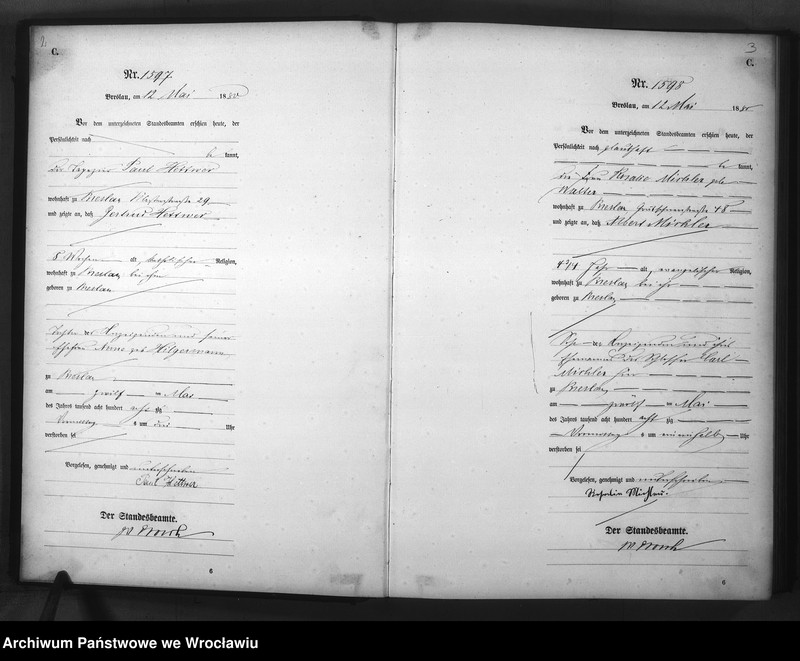 2
C.
Nr. 1597.
Breslau, am 12 Mai 1880
Vor dem unterzeichneten Standesbeamten erschien heute, der
Persönlichkeit nach
be kannt,
der Paul Hettwer
wohnhaft zu Breslau 29
und zeigte an, daß Gertrud Hettwer
8 Wochen alt, katholischer Religion,
wohnhaft zu Breslau bei ihm
geboren zu Breslau
Tochter des Anzeigenden und seiner
Ehefrau Anna geb. Hilgermann
zu Breslau
am zwölf ten Mai
des Jahres tausend acht hundert acht zig
Vormittag s um drei Uhr
verstorben sei
Vorgelesen, genehmigt und unterschrieben
Paul Hettwer
Der Standesbeamte.
6
3
C.
Nr. 1598
Breslau, am 12 Mai 1880
Vor dem unterzeichneten Standesbeamten erschien heute, der
Persönlichkeit nach glaubhaft
be kannt,
die Frau Mickler geb.
Walter
wohnhaft zu Breslau 48
und zeigte an, daß Albert Mickler
4 3/4 Jahr alt, evangelischer Religion,
wohnhaft zu Breslau bei ihr
geboren zu Breslau
Sohn der Anzeigenden und ihres
Ehemannes des Schlosser Karl
Mickler hier
zu Breslau
am zwölf ten Mai
des Jahres tausend acht hundert acht zig
Vormittag s um Uhr
verstorben sei
Vorgelesen, genehmigt und unterschrieben
Der Standesbeamte.
6
Archiwum Państwowe we Wrocławiu